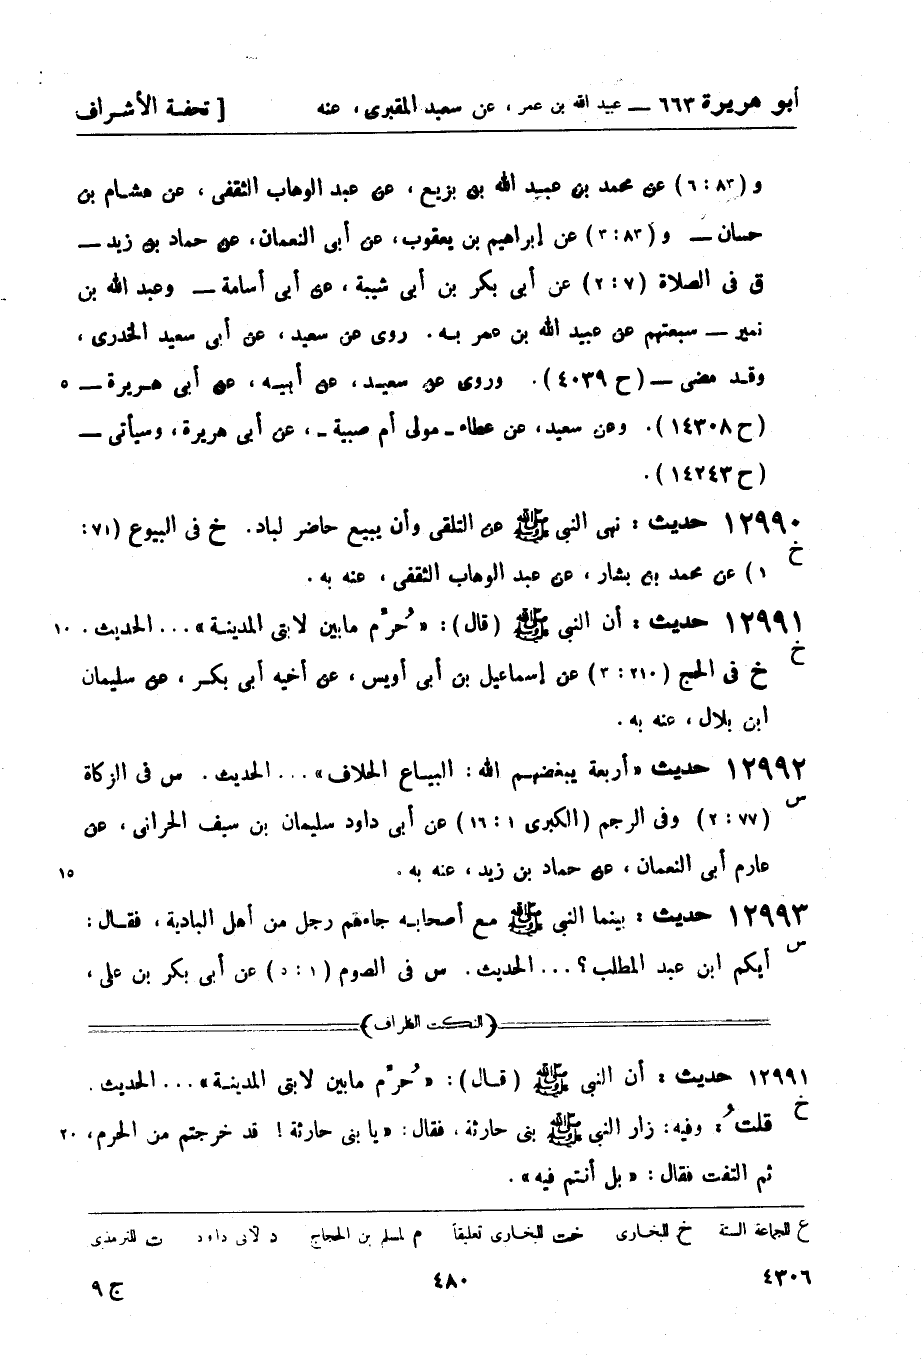 أبو هريرة ٦٦٣ ــ عبيد الله بن عمر ، عن سعيد المقبرى ، عنه [ تحفة الأشراف
و (٨٣ : ٦) عن محمد بن عبيد الله بن بزيع ، عن عبد الوهاب الثقفى ، عن هشام بن
حسان ــ و (٨٣ : ٣) عن إبراهيم بن يعقوب، عن أبى النعمان، عن حماد بن زيد ــ
ق فى الصلاة (٧ : ٢) عن أبى بكر بن أبى شيبة ، عن أبى أسامة ــ وعبد الله بن
نمير ــ سبعتهم عن عبيد الله بن عمر بـه. روى عن سعيد، عن أبى سعيد الخدرى ،
وقـد مضى ــ (ح ٤٠٣٩). وروى عن سعيـد، عن أبيـه ، عن أبى هـريرة ــ ٥
(ح ١٤٣٠٨). وعن سعيد، عن عطاء ـ مولى أم صبية ـ ، عن أبى هريرة ، وسيأتى ــ
(ح ١٤٢٤٣).
١٢٩٩٠ حديث : نهى النبى ﷺ عن التلقى وأن يبيع حاضر لباد. خ فى البيوع (٧١ :
خ
١) عن محمد بن بشار ، عن عبد الوهاب الثقفى ، عنه به .
١٢٩٩١ حديث : أن النبى ﷺ (قال) : « حُرِّم مابين لابتى المدينـة» ... الحديث . ١٠
خ
خ فى الحج (٢١٠ : ٣) عن إسماعيل بن أبى أويس ، عن أخيه أبى بكـر ، عن سليمان
ابن بلال ، عنه به .
١٢٩٩٢ حديث « أربعة يبغضهـم الله : البيـاع الحلاف» ... الحديث . س فى الزكاة
س
(٧٧ : ٢) وفى الرجم (الكبرى ١ : ١٦) عن أبى داود سليمان بن سيف الحرانى ، عن
عارم أبى النعمان ، عن حماد بن زيد ، عنه به . ١٥
١٢٩٩٣ حديث : بينما النبى ﷺ مـع أصحابـه جاءهم رجل من أهل البادية ، فقـال :
س
أيكم ابن عبد المطلب ؟ ... الحديث. س فى الصوم (١ : ٥) عن أبى بكر بن على ،
(النكت الظراف)
١٢٩٩١ حديث : أن النبى ﷺ (قـال) : «حُرِّم مابين لابتى المدينـة» ... الحديث .
خ
قلتُ : وفيه : زار النبى ﷺ بنى حارثة ، فقال : «يا بنى حارثة ! قد خرجتم من الحرم، ٢٠
ثم التفت فقال : « بل أنتم فيه» .
ع للجماعة الستة خ للبخارى خت للبخارى تعليقاً م لمسلم بن الحجاج د لأبى داود ت للترمذى
٤٣٠٦ ٤٨٠ ج ٩